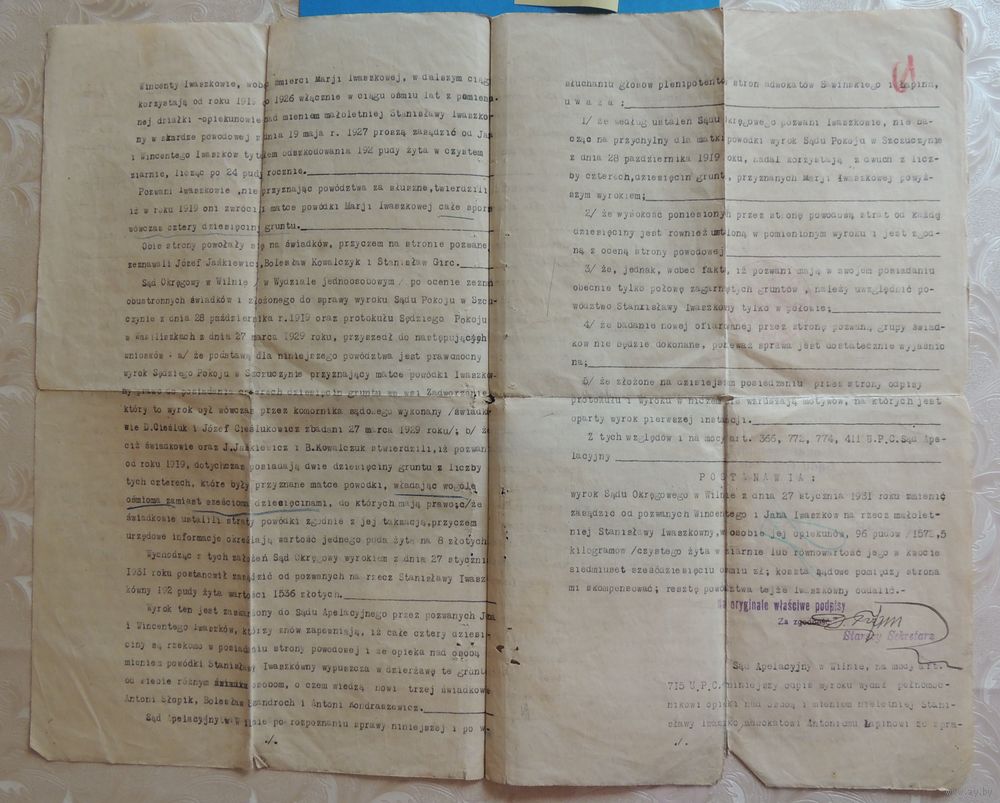 Wincenty Iwaszkowie, wobec śmierci Marji Iwaszkowej, w dalszym ciągu
korzystają od roku 1919 do 1926 włącznie w ciągu ośmiu lat z pomienio-
nej działki -opiekunowie nad mieniem małoletniej Stanisławy Iwaszków-
ny w skardze powodowej z dnia 19 maja r. 1927 proszą zasądzić od Jana
i Wincentego Iwaszków tytułem odszkodowania 192 pudy żyta w czystem
ziarnie, licząc po 24 pudy rocznie.
Pozwani Iwaszkowie ,nie przyznając powództwa za słuszne,twierdzili
iż w roku 1919 oni zwrócili matce powódki Marji Iwaszkowej całe sporne
wówczas cztery dziesięciny gruntu.
Obie strony powołały się na świadków, przyczem na stronie pozwanej
zeznawali Józef Jańkiewicz,Bolesław Kowalczyk i Stanisław Girc.
Sąd Okręgowy w Wilnie /w Wydziale jednoosobowym/ po ocenie zeznań
obustronnych świadków i złożonego do sprawy wyroku Sądu Pokoju w Szczu-
czynie z dnia 28 października r.1919 oraz protokułu Sędziego Pokoju
w Wasiliszkach z dnia 27 marca 1929 roku, przyszedł do następujących
wniosków: a/ że podstawą dla niniejszego powództwa jest prawomocny
wyrok Sędziego Pokoju w Szczuczynie przyznający matce powódki Iwaszków-
ny prawo do posiadania czterech dziesięcin gruntu we wsi Zadworzanie
który to wyrok był wówczas przez komornika sądowego wykonany /świadko-
wie D.Cieśluk i Józef Cieślukowicz zbadani 27 marca 1929 roku/; b/ że
ciż świadkowie oraz J.Jańkiewicz i B.Kowalczuk stwierdzili,iż pozwani
od roku 1919, dotychczas posiadają dwie dziesięciny gruntu z liczby
tych czterech, które były przyznane matce powódki, władając wogóle
ośmioma zamiast sześcioma dziesięcinami, do których mają prawo;c/że
świadkowie ustalili straty powódki zgodnie z jej taksacją,przyczem
urzędowe informacje określają wartość jednego puda żyta na 8 złotych.
Wychodząc z tych założeń Sąd Okręgowy wyrokiem z dnia 27 stycznia
1931 roku postanowił zasądzić od pozwanych na rzecz Stanisławy Iwasz-
kówny 192 pudy żyta wartości 1536 złotych.
Wyrok ten jest zaskarżony do Sądu Apelacyjnego przez pozwanych Jana
i Wincentego Iwaszków, którzy znów zapewniają, iż całe cztery dziesię-
ciny są rzekomo w posiadaniu strony powodowej i że opieka nad osobą i
mieniem powódki Stanisławy Iwaszkówny wypuszcza w dzierżawę te grunta
od siebie różnym osobom, o czem wiedzą nowi trzej świadkowie
Antoni Słopik, Bolesław i Antoni Kondraszewicz.
Sąd Apelacyjny w Wilnie po rozpoznaniu sprawy niniejszej i po wy-
./.
słuchaniu głosów plenipotentów stron adwokatów Sawińskiego i Łapina,
u w a ż a :
1/ że według ustaleń Sądu Okręgowego pozwani Iwaszkowie, nie ba-
cząc na przychylny dla matki powódki wyrok Sądu Pokoju w Szczuczynie
z dnia 28 października 1919 roku, nadal korzystają z dwuch z licz-
by czterech,dziesięcin gruntu, przyznanych Marji Iwaszkowej powyż-
szym wyrokiem;
2/ że wysokość poniesionych przez stronę powodową strat od każdej
dziesięciny jest również ustaloną w pomienionym wyroku i jest zgod-
ną z oceną strony powodowej
3/ że, jednak, wobec faktu, iż pozwani mają w swojem posiadaniu
obecnie tylko połowę zagarniętych gruntów, należy uwzględnić po-
wództwo Stanisławy Iwaszkówny tylko w połowie;
4/ że badanie nowej ofiarowanej przez stronę pozwaną grupy świad-
ków nie będzie dokonane, ponieważ sprawa jest dostatecznie wyjaśnio
na;
5/ że złożone na dzisiejszem posiedzeniu przez strony odpisy
protokułu i wyroku w niczem nie wzruszają motywów, na których jest
oparty wyrok pierwszej instancji.
Z tych względów i na mocy art. 366, 772, 774, 411 U.P.C.Sąd Ape-
lacyjny
P O S T A N A W I A :
wyrok Sądu Okręgowego w Wilnie z dnia 27 stycznia 1931 roku zmienić
zasądzić od pozwanych Wincentego i Jana Iwaszków na rzecz małolet-
niej Stanisławy Iwaszkówny,w osobie jej opiekunów, 96 pudów /1572,5
kilogramów /czystego żyta w ziarnie lub równowartość jego w kwocie
siedmiuset sześćdziesięciu ośmiu zł; koszta sądowe pomiędzy strona
mi skompensować; resztę powództwa tejże Iwaszkówny oddalić.-
Na oryginale właściwe podpisy
Za zgodność
Starszy Sekretarz
Sąd Apelacyjny w Wilnie, na mocy art.
715 U.P.C. niniejszy odpis wyroku wydał pełnomoc-
nikowi opieki nad osobą i mieniem nieletniej Stani-
sławy Iwaszko,adwokatowi Antoniemu Łapinowi ze spra-
./.
www.ay.by